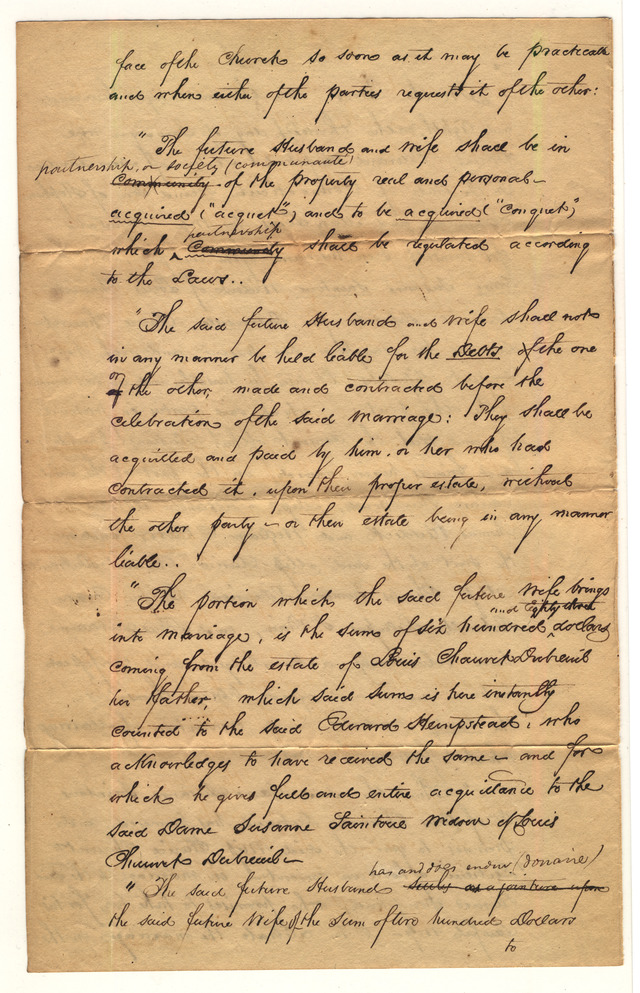 face of the Church so soon as it may be practicable
and when either of the parties requests it of the other:
"The future Husband and Wife shall be in
partnership, or society (communauté)
Community of the property real and personal
acquired ("acquet") and to be acquired ("conquet")
partnership
which Community shall be regulated according
to the Laws..
"The said future Husband and Wife shall not
in any manner be held liable for the Debts of the one
or
of the other, made and contracted before the
celebration of the said marriage: They shall be
acquitted and paid by him or her who had
contracted it, upon their proper estate, without
the other party or their estate being in any manner
liable..
"The portion which the said future Wife brings
and Eighty three
into marriage, is the sum of six hundred dollars
coming from the estate of Louis Chauvet Dubreuil
her father, which said sum is here instantly
counted to the said Edward Hempstead, who
acknowledges to have received the same and for
which he gives full and entire acquittance to the
said Dame Susanne Saintous Widow of Louis
Chauvet Dubreuil
has and dogs endow (douaire)
"The said future Husband settles as a jointure upon
the said future Wife of the sum of two hundred Dollars
to